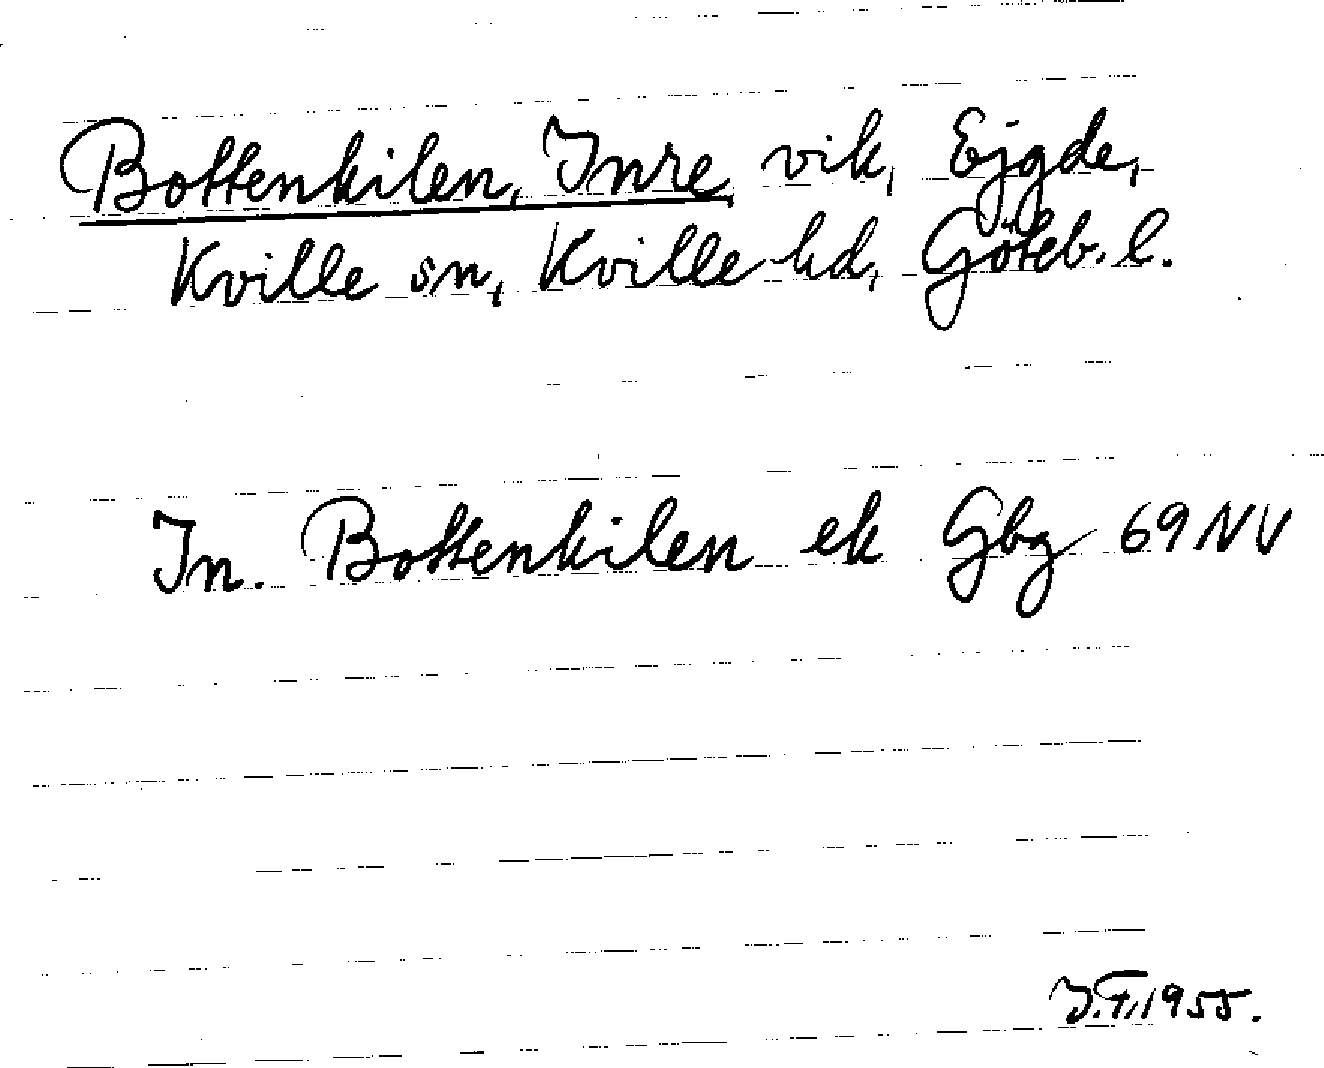 Bottenkilen, Inre vik, Ejgde,
Kville sn, Kville hd, Göteb. l.
In. Bottenkilen ek Gbg 69 NV
J.F. 1955.